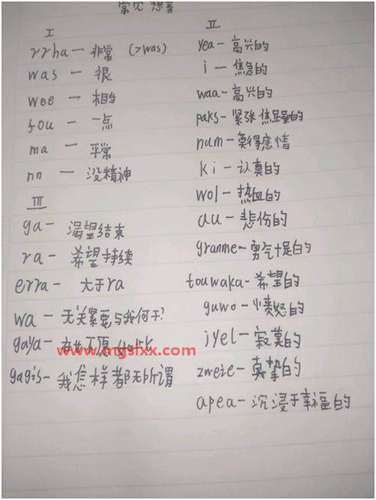 常见想音
I
rrha — 非常 (>was)
was — 很
wee — 相当
fou — 一点
ma — 平常
nn — 没精神
III
ga — 渴望结束
ra — 希望持续
erra — 大于ra
wa — 无关紧要与我何干?
gaya —
www.mgsixx.com
gagis — 我怎样都无所谓
II
yea — 高兴的
i — 焦急的
waa — 高兴的
paks — 紧张焦虑的
num — 莫得感情
ki — 认真的
wol — 热血的
au — 悲伤的
granme — 勇气十足的
touwaka — 希望的
guwo — 愤怒的
iyel — 寂寞的
zweie — 真挚的
apea — 沉浸于幸福的